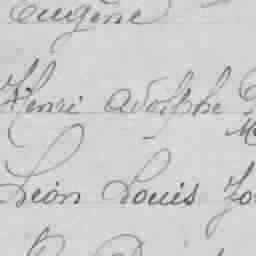 Eugène
Henri Adolphe
Léon Louis